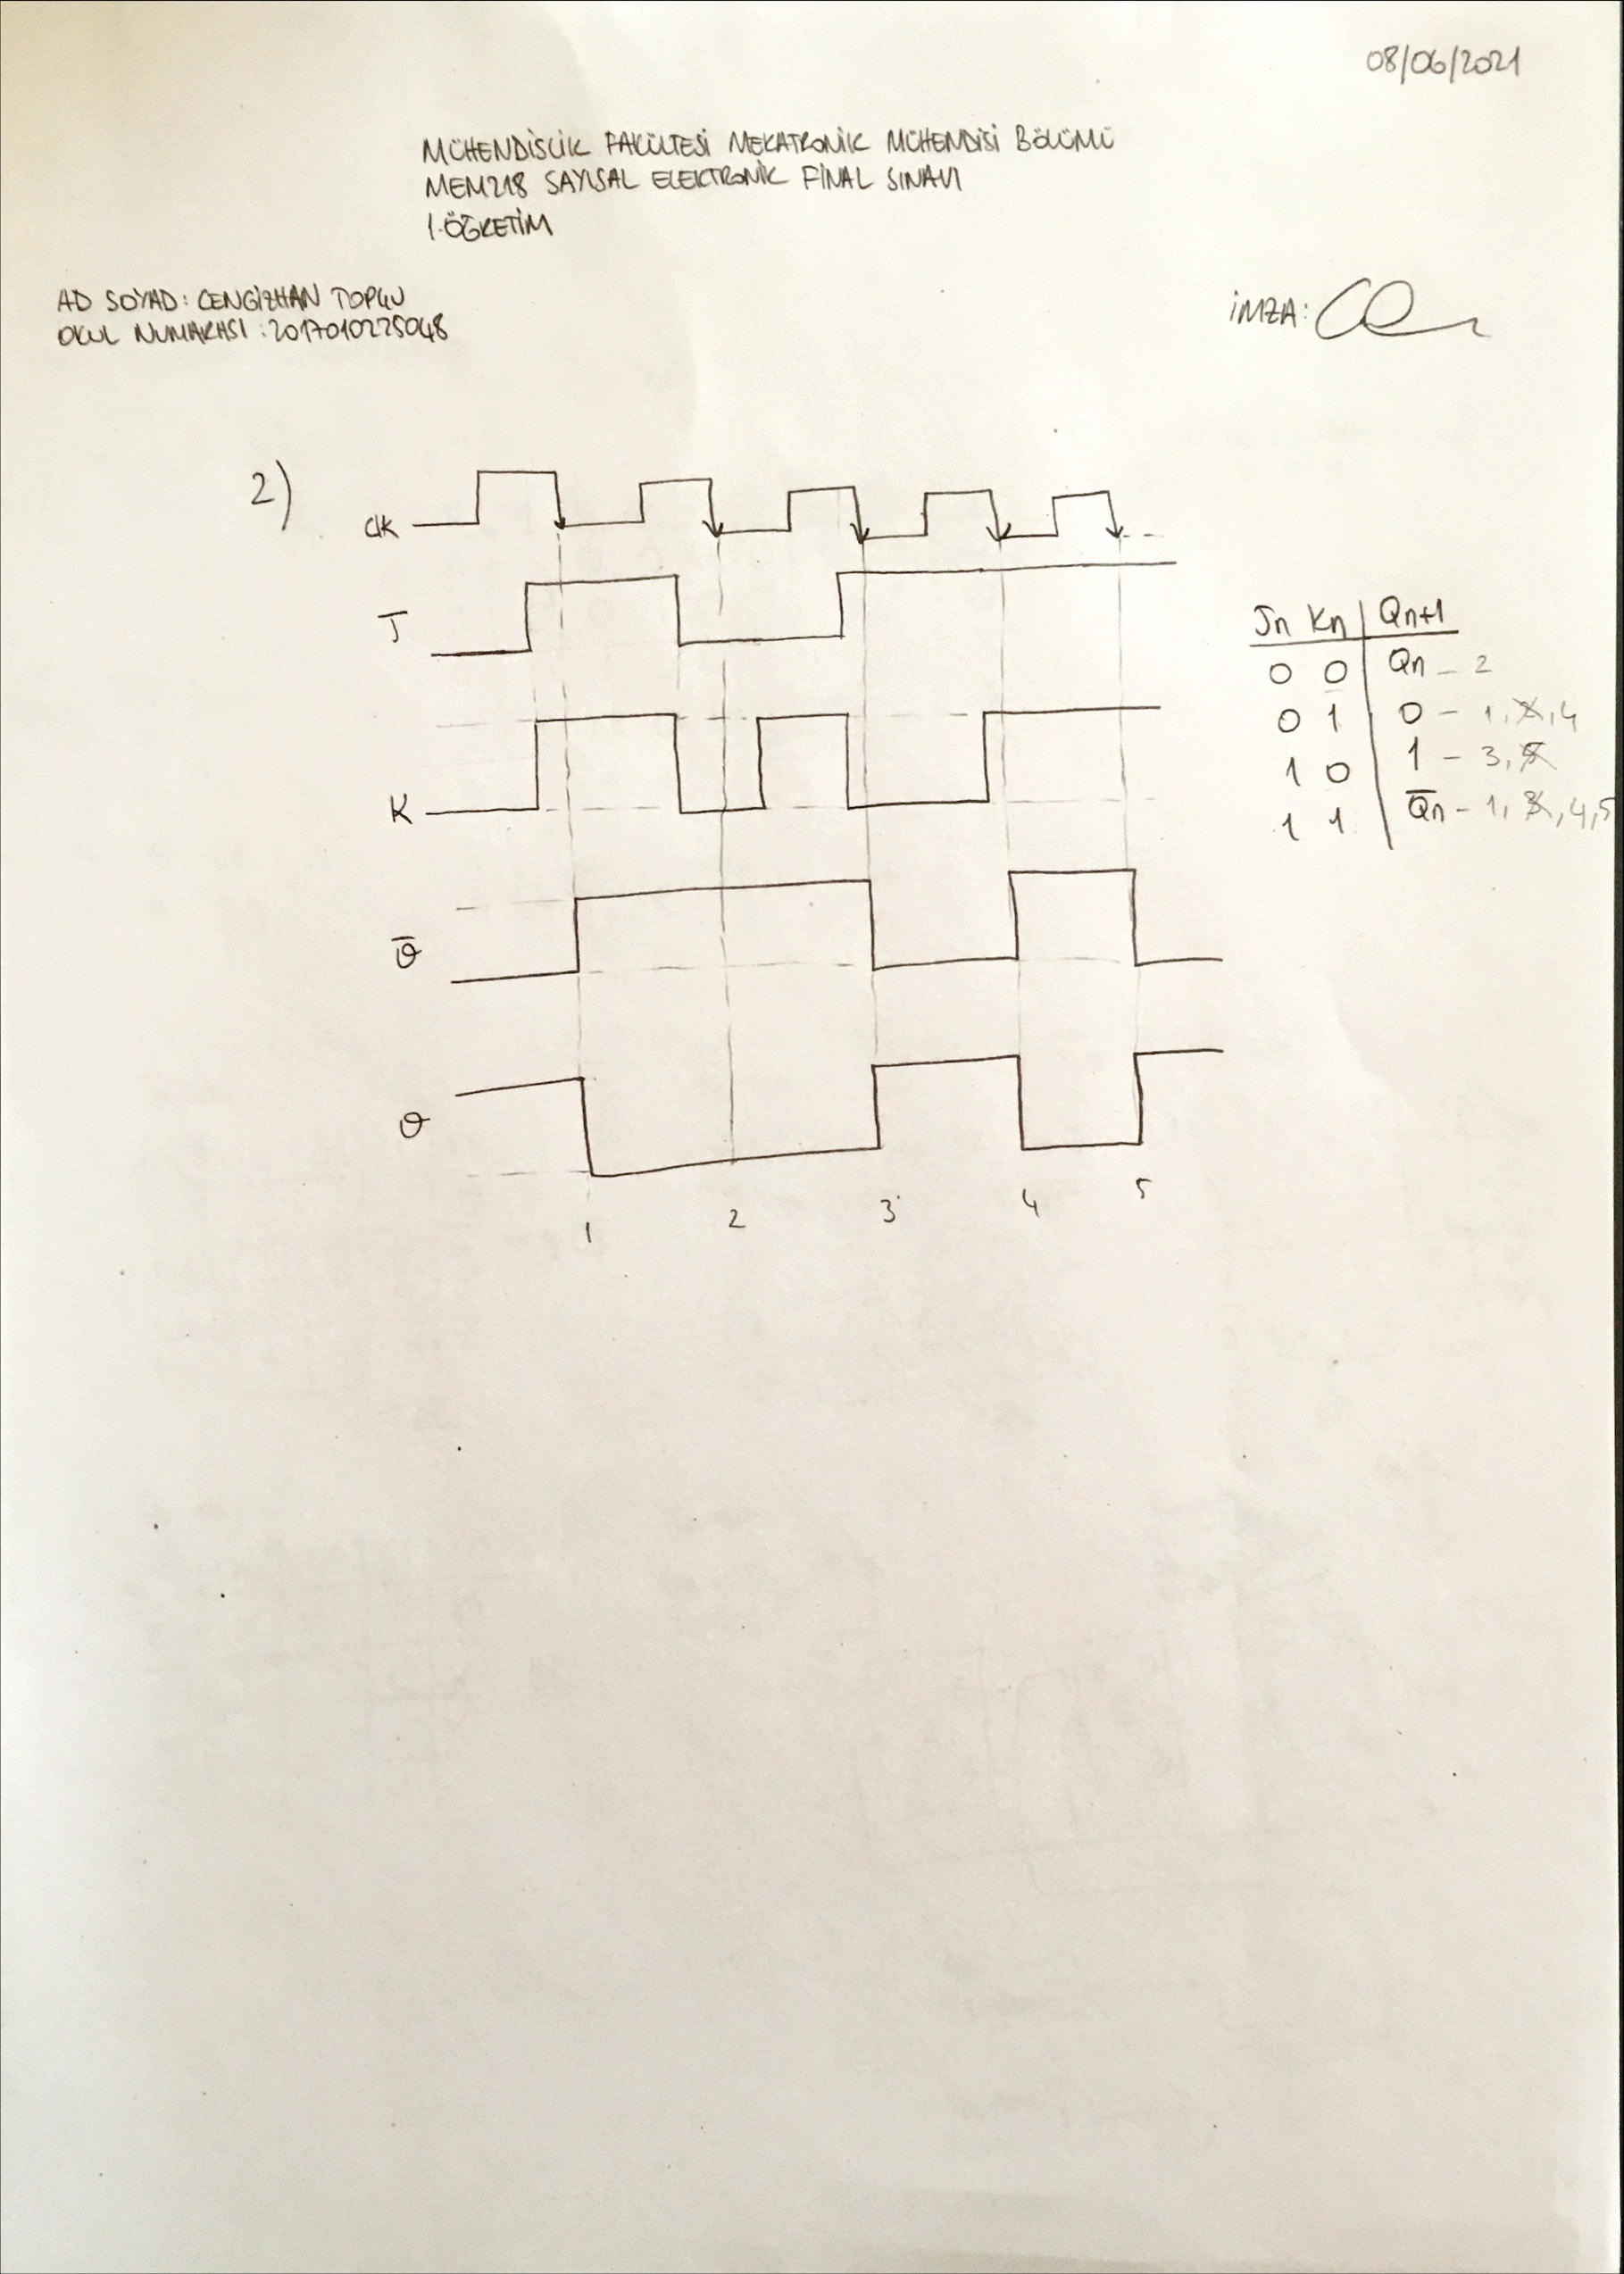 08/06/2021
MÜHENDİSLİK FAKÜLTESİ MEKATRONİK MÜHENDİSİ BÖLÜMÜ
MEM218 SAYISAL ELEKTRONİK FİNAL SINAVI
1.ÖĞRETİM
AD SOYAD: CENGİZHAN TOPÇU
OKUL NUMARASI: 2017010225048
İMZA:
2)
clk
J
K
Q̅
Q
1 2 3 4 5
Jn Kn | Qn+1
0 0 | Qn - 2
0 1 | 0 - 1, , 4
1 0 | 1 - 3,
1 1 | Q̅n - 1, , 4,5